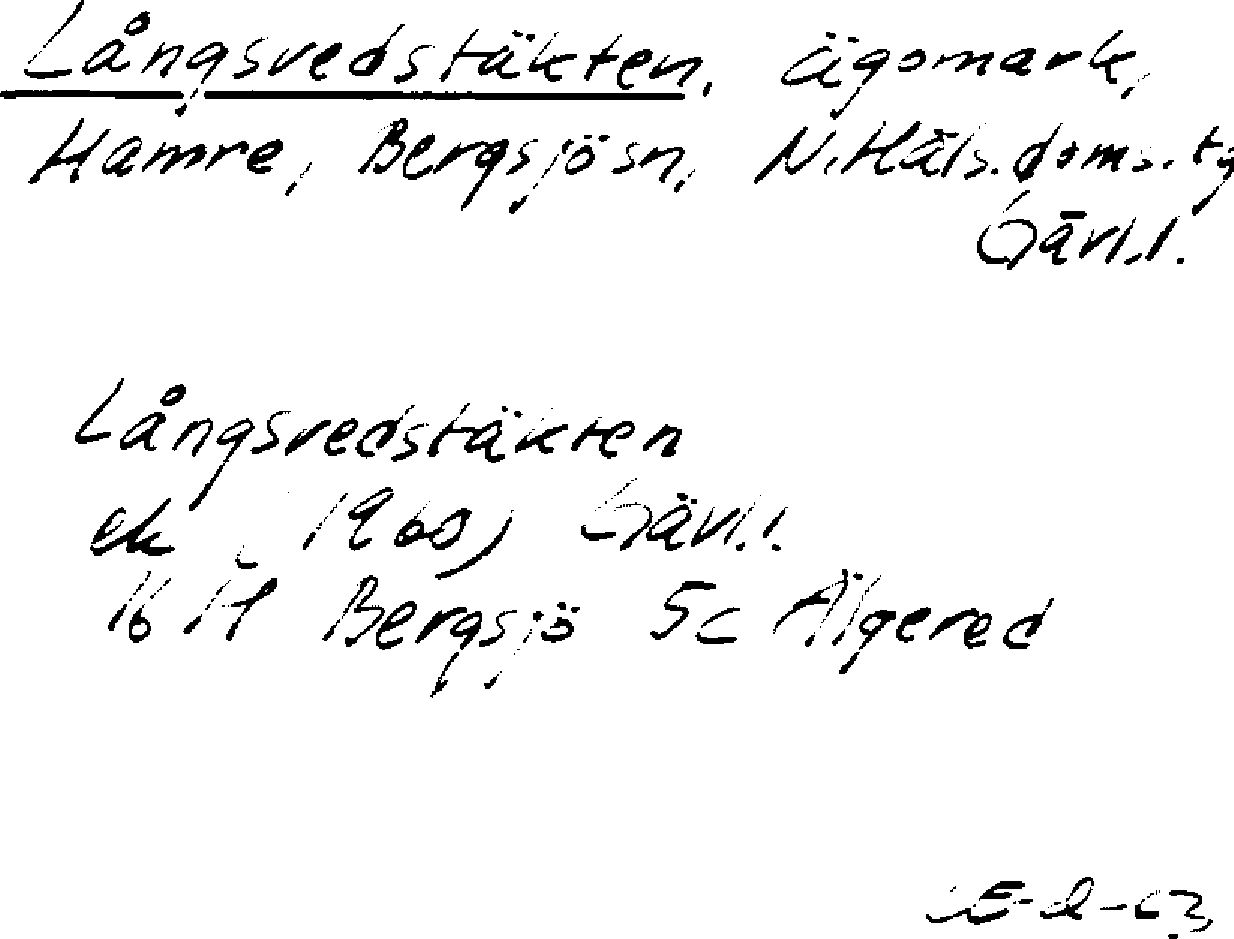 Långsvedstäkten, ägomark,
Hamre, Bergsjö sn, N. Häls. doms. tg
Gävl.l.
Långsvedstäkten
ek (1960) Gävl.l.
16 H Bergsjö 5c Älgered